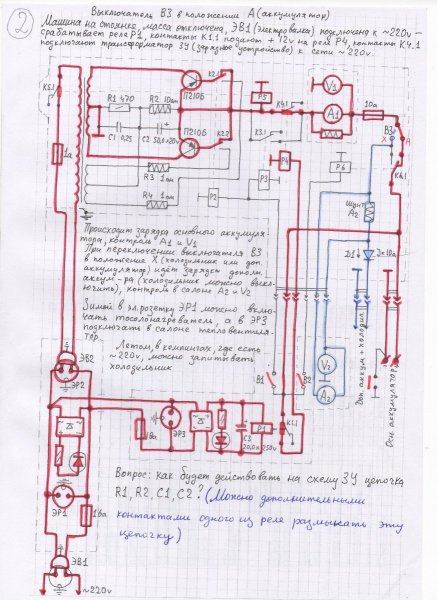 Выключатель В3 в положении А (аккумулятор)
2
Машина на стоянке, масса отключена, ЭВ1 (электровилка) подключена к ~220v -
срабатывает реле Р1, контакты К1.1 подают + 12v на реле Р4, контакты К4.1
подключают трансформатор ЗУ (зарядное устройство) к сети ~ 220v.
К5.1
П210Б
К2.1
R1 470
R2 10ом
П210Б
C1 0,25
C2 50,0×20v
К2.2
R3 1ом
R4 1ом
1а
Р5
К4.1
К3.1
Р4
Р3
Р2
V1
А1
10а
В3
Х
А
К4.1
Р6
Шунт
А2
Д1
Д=10а
V2
А2
В1
В2
Доп. аккум + холодил.
Осн. аккумулятор
Происходит зарядка основного аккумуля
тора, контроль А1 и V1
При переключении выключателя В3
в положение Х (холодильник или доп.
аккумулятор) идёт зарядка дополн.
аккум-ра (холодильник можно выкл-
ючить), контроль в салоне А2 и V2
Зимой в эл.розетку ЭР1 можно вклю-
чать тосолонагреватель, а в ЭР3
подключать в салоне тепловентиля-
тор.
Летом, в кемпингах, где есть
~220v, можно запитывать
холодильник
ЭВ2
ЭР2
ЭР1
16а
ЭВ1
~220v
10а
ЭР3
C3
20,0×250v
Р1
К1.1
Вопрос: как будет действовать на схему ЗУ цепочка
R1, R2, C1, C2? (Можно дополнительными
контактами одного из реле размыкать эту
цепочку)